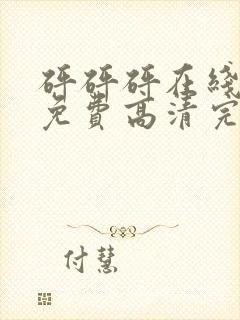 砰砰砰在线
免费高清完
付慧